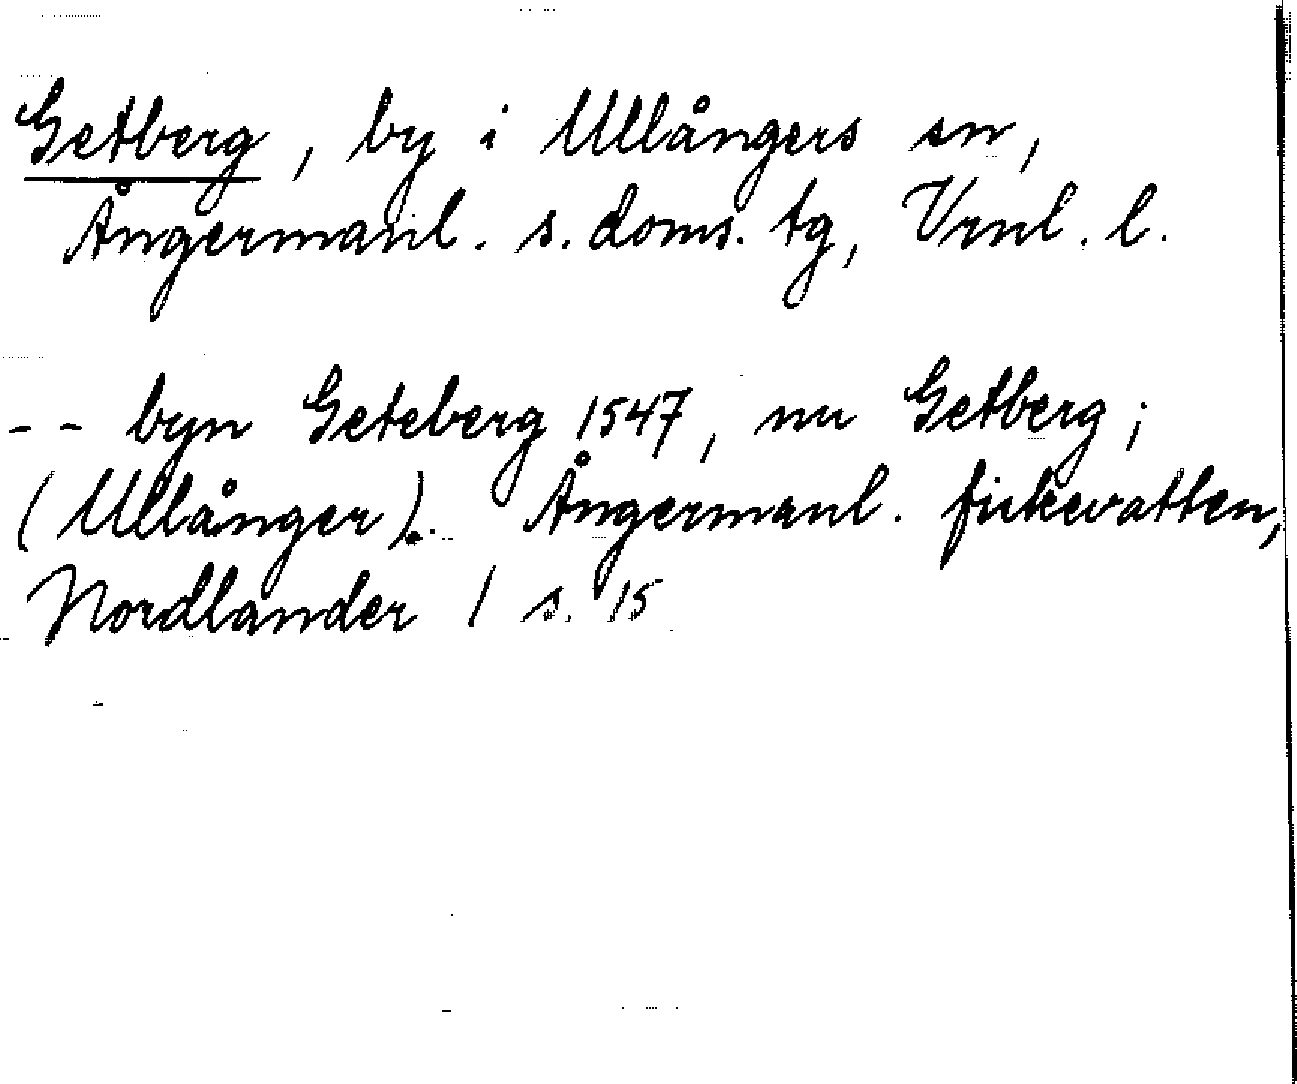 Getberg, by i Ullångers sn,
Ångermanl. s. doms. tg, Vrnl. l.
-- byn Geteberg 1547, nu Getberg;
(Ullånger). Ångermanl. fiskevatten,
Nordlander / s. 15